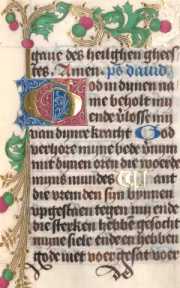 gaue des heilighen ghees
tes. Amen. ps dauid
God in dynen na
me beholt my
ende v̓losse my
van dynre kracht God
verhore myne bede v̓nym
mit dynen oren die woerde
myns mundes Want
die vremden syn bynnen
vpgestaen tegen my ende
die stercken hebben gesocht
myne siele ende en hebben
gode niet voergesat voer